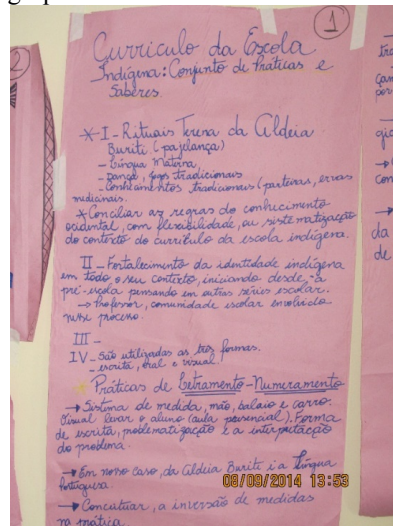 1
Curriculo da Escola
Indígena: Conjunto de Práticas e
Saberes.
I - Rituais Terena da Aldeia
Buriti (pajelança)
- Língua Materna
- Dança, jogos tradicionais
- Conhecimentos tradicionais (parteiras, ervas
medicinais.
* Conciliar as regras do conhecimento
ocidental, com flexibilidade, ou sistematização
do contexto do currículo da escola indígena.
II - Fortalecimento da identidade indígena
em todo o seu contexto, iniciando desde, a
pré-escola pensando em outras séries escolar.
→ Professor, comunidade escolar envolvido
nesse processo.
III -
IV - São utilizadas as três formas.
- escrita, oral e visual.
Práticas de Letramento-Numeramento
→ Sistema de medida, mão, balaio e carro.
Visual levar o aluno (aula presencial). Forma
de escrita, problematização e a interpretação
do problema.
→ Em nosso caso, da Aldeia Buriti é a Língua
Portuguesa.
→ Conceituar, a inversão de medidas
na prática.
2
da
de
08/09/2014 13:53